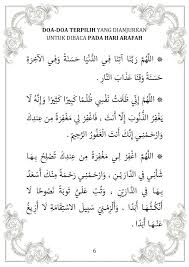 DOA-DOA TERPILIH YANG DIANJURKAN
UNTUK DIBACA PADA HARI ARAFAH
* اللَّهُمَّ رَبَّنَا آتِنَا فِي الدُّنْيَا حَسَنَةً وَفِي الآخِرَةِ
حَسَنَةً وَقِنَا عَذَابَ النَّارِ .
* اللَّهُمَّ إِنِّي ظَلَمْتُ نَفْسِي ظُلْمًا كَثِيرًا كَبِيرًا وَإِنَّهُ لَا
يَغْفِرُ الذُّنُوبَ إِلَّا أَنْتَ ، فَاغْفِرْ لِي مَغْفِرَةً مِنْ عِنْدِكَ
وَارْحَمْنِي إِنَّكَ أَنْتَ الْغَفُورُ الرَّحِيمُ .
* اللَّهُمَّ اغْفِرْ لِي مَغْفِرَةً مِنْ عِنْدِكَ تُصْلِحُ بِهَا
شَأْنِي فِي الدَّارَيْنِ ، وَارْحَمْنِي رَحْمَةً مِنْكَ أَسْعَدُ
بِهَا فِي الدَّارَيْنِ ، وَتُبْ عَلَيَّ تَوْبَةً نَصُوحًا لَا
أَنْكُثُهَا أَبَدًا ، وَأَلْزِمْنِي سَبِيلَ الاسْتِقَامَةِ لَا أَزِيغُ
عَنْهَا أَبَدًا .
6